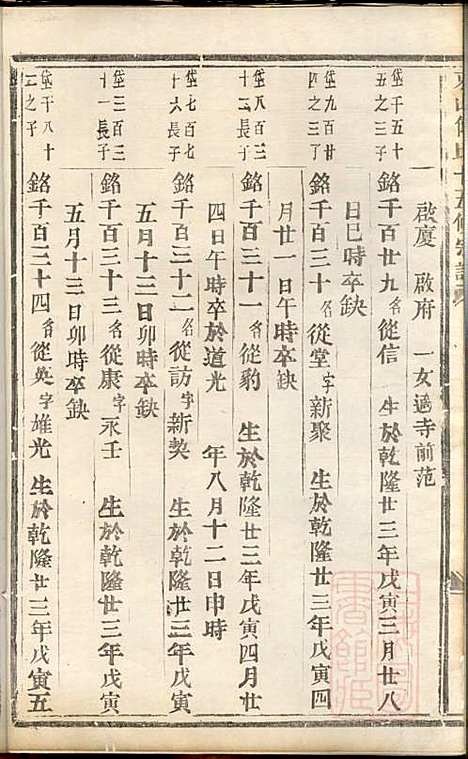 啟廈 啟府 一女適寺前范
岱千五十五之三子
銘千百廿九名從信 生於乾隆廿三年戊寅三月廿八
日巳時卒缺
岱九百廿四之三子
銘千百三十名從堂字新聚 生於乾隆廿三年戊寅四
月廿一日午時卒缺
岱八百三十二長子
銘千百三十一名從豹 生於乾隆廿三年戊寅四月廿
四日午時卒於道光 年八月十二日申時
岱七百七十六長子
銘千百三十二名從訪字新契 生於乾隆廿三年戊寅
五月十二日卯時卒缺
岱三百三十一長子
銘千百三十三名從康字永壬 生於乾隆廿三年戊寅
五月十三日卯時卒缺
岱千八十二之子
銘千百三十四名從英字雄光 生於乾隆廿三年戊寅五